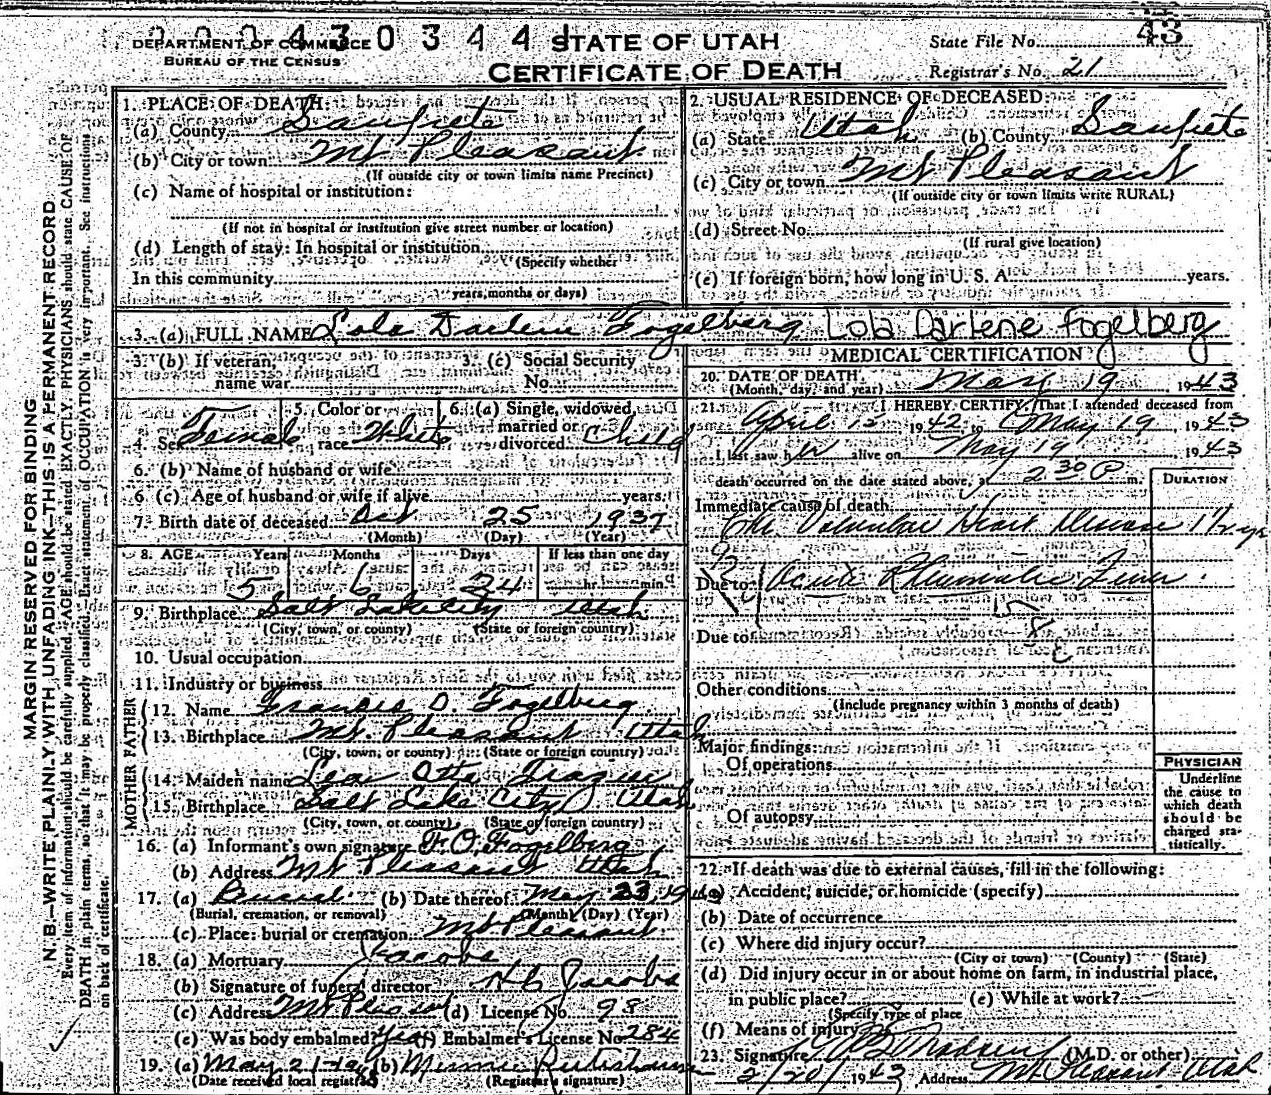 DEPARTMENT OF COMMERCE
BUREAU OF THE CENSUS
0 0 0 4 3 0 3 4 4 1
STATE OF UTAH
CERTIFICATE OF DEATH
State File No. 43
Registrar's No. 21
MARGIN RESERVED FOR BINDING
N. B.—WRITE PLAINLY WITH UNFADING INK—THIS IS A PERMANENT RECORD
Every item of information should be carefully supplied. AGE should be stated EXACTLY. PHYSICIANS should state CAUSE OF
DEATH in plain terms, so that it may be properly classified. Exact statement of OCCUPATION is very important. See instructions
on back of certificate.
1. PLACE OF DEATH:
(a) County Sanpete
(b) City or town Mt Pleasant
(If outside city or town limits name Precinct)
(c) Name of hospital or institution:
(If not in hospital or institution give street number or location)
(d) Length of stay: In hospital or institution
(Specify whether
In this community
years, months or days)
2. USUAL RESIDENCE OF DECEASED:
(a) State Utah (b) County Sanpete
(c) City or town Mt Pleasant
(If outside city or town limits write RURAL)
(d) Street No.
(If rural give location)
(e) If foreign born, how long in U. S. A. years.
3. (a) FULL NAME Lola Darlene Fogelberg Lola Darlene Fogelberg
3. (b) If veteran, name war
3. (c) Social Security No.
4. Sex Female
5. Color or race White
6. (a) Single, widowed, married or divorced Child
6. (b) Name of husband or wife
6 (c) Age of husband or wife if alive years.
7. Birth date of deceased Oct 25 1937
(Month) (Day) (Year)
8. AGE Years Months Days If less than one day
5 6 24 hr. min.
9. Birthplace Salt Lake City Utah
(City, town, or county) (State or foreign country)
10. Usual occupation
11. Industry or business
FATHER
12. Name Francis O. Fogelberg
13. Birthplace Mt. Pleasant Utah
(City, town, or county) (State or foreign country)
MOTHER
14. Maiden name Frazier
15. Birthplace Salt Lake City Utah
(City, town, or county) (State or foreign country)
16. (a) Informant's own signature F. O. Fogelberg
(b) Address Mt Pleasant Utah
17. (a) Burial (b) Date thereof May 23, 1943
(Burial, cremation, or removal) (Month) (Day) (Year)
(c) Place: burial or cremation Mt Pleasant
18. (a) Mortuary Jacobs
(b) Signature of funeral director Jacobs
(c) Address Mt Pleasant (d) License No. 98
(e) Was body embalmed? yes (f) Embalmer's License No. 284
19. (a) May 21-1943 (b) Minnie Rutishauser
(Date received local registrar) (Registrar's signature)
MEDICAL CERTIFICATION
20. DATE OF DEATH May 19 1943
(Month, day, and year)
21. I HEREBY CERTIFY, That I attended deceased from
April 15 1942 to May 19 1943
I last saw her alive on May 19 1943
death occurred on the date stated above, at 2 30 P m.
DURATION
Immediate cause of death
Valvular Heart Disease 1 1/2 yr
Due to Acute Rheumatic Fever.
Due to
Other conditions
(Include pregnancy within 3 months of death)
Major findings:
Of operations
Of autopsy
PHYSICIAN
Underline
the cause to
which death
should be
charged sta-
tistically.
22. If death was due to external causes, fill in the following:
(a) Accident, suicide, or homicide (specify)
(b) Date of occurrence
(c) Where did injury occur?
(City or town) (County) (State)
(d) Did injury occur in or about home on farm, in industrial place,
in public place? (e) While at work?
(Specify type of place
(f) Means of injury
23. Signature Madsen (M.D. or other)
2/20/ 1943 Address Mt Pleasant Utah